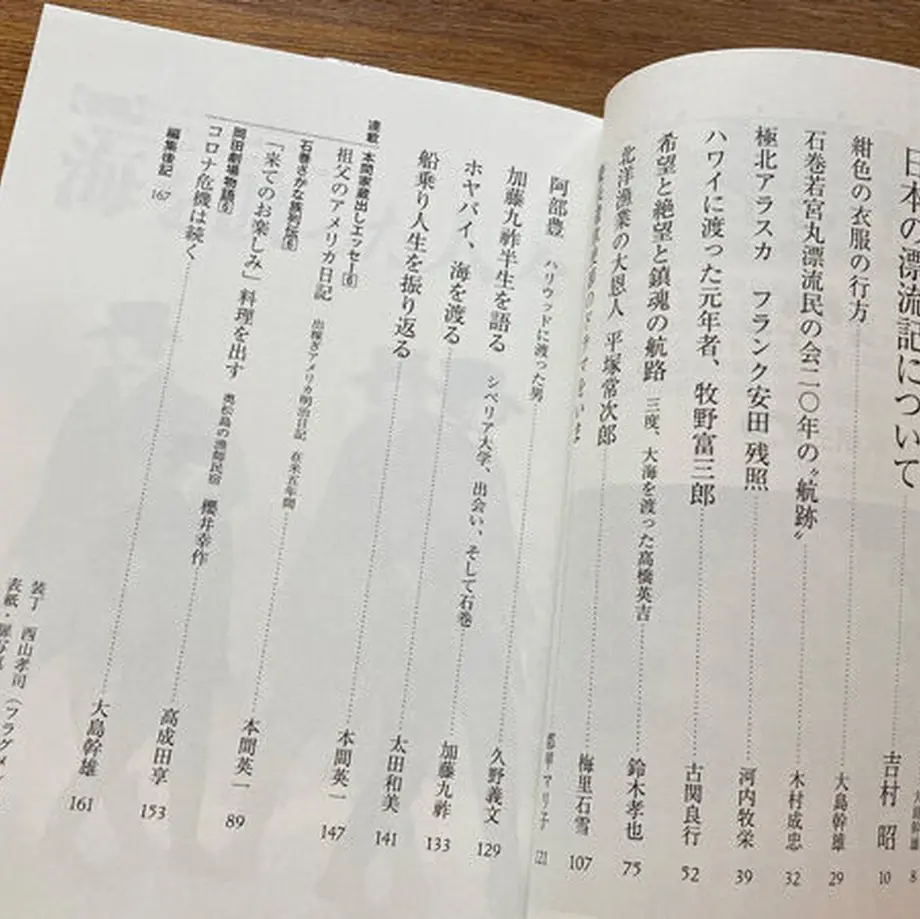 8
日本の漂流記について 吉村 昭 10
紺色の衣服の行方 大島幹雄 29
石巻若宮丸漂流民の会二〇年の〝航跡〟 木村成忠 32
極北アラスカ フランク安田 残照 河内牧栄 39
ハワイに渡った元年者、牧野富三郎 古関良行 52
希望と絶望と鎮魂の航路 三度、大海を渡った高橋英吉 鈴木孝也 75
北洋漁業の大恩人 平塚常次郎 梅里石雪 107
121
阿部豊 ハリウッドに渡った男 久野義文 129
加藤九祚半生を語る シベリア大学、出会い、そして石巻 加藤九祚 133
ホヤバイ、海を渡る 太田和美 141
船乗り人生を振り返る 本間英一 147
連載 本間家蔵出しエッセー6
祖父のアメリカ日記 出稼ぎアメリカ明治日記 在米五年間 本間英一 89
石巻さかな族列伝6
「来てのお楽しみ」料理を出す 奥松島の漁師民宿 櫻井幸作 高成田享 153
岡田劇場物語5
コロナ危機は続く 大島幹雄 161
編集後記 167
装丁 西山孝司（フラグメン
表紙・扉